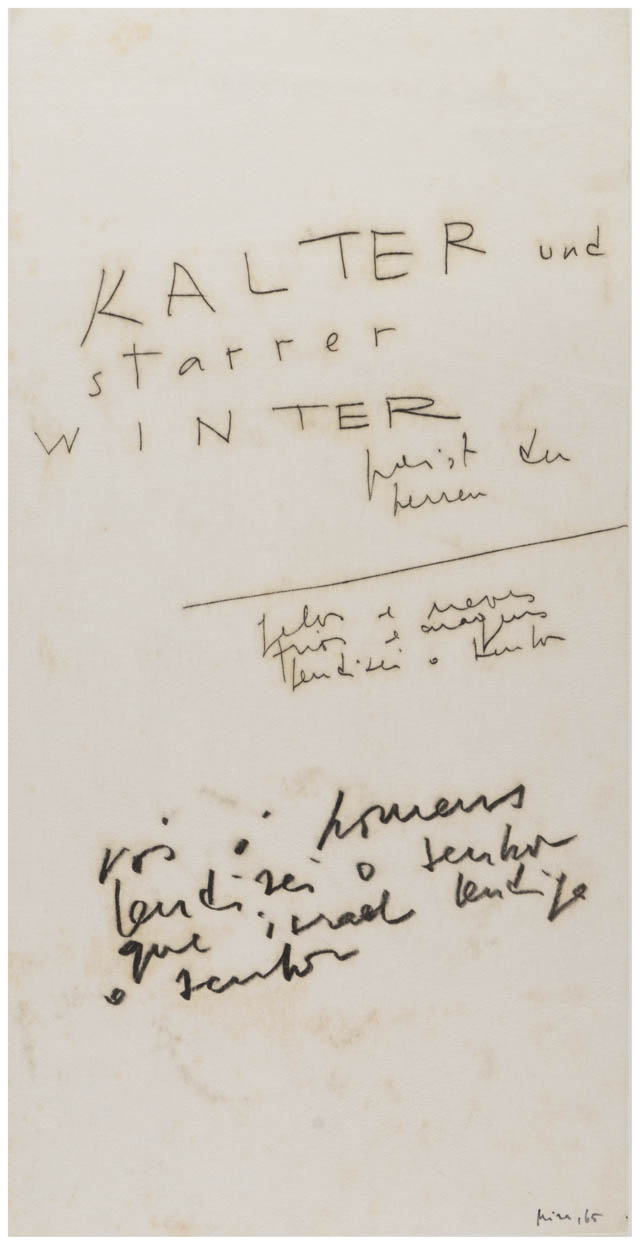 KALTER und
starrer
WINTER
preist den
herren
gelos e neves
frios e
bendizei o senhor
vós ó homens
bendizei o senhor
que israel bendiga
o senhor
mira, 65